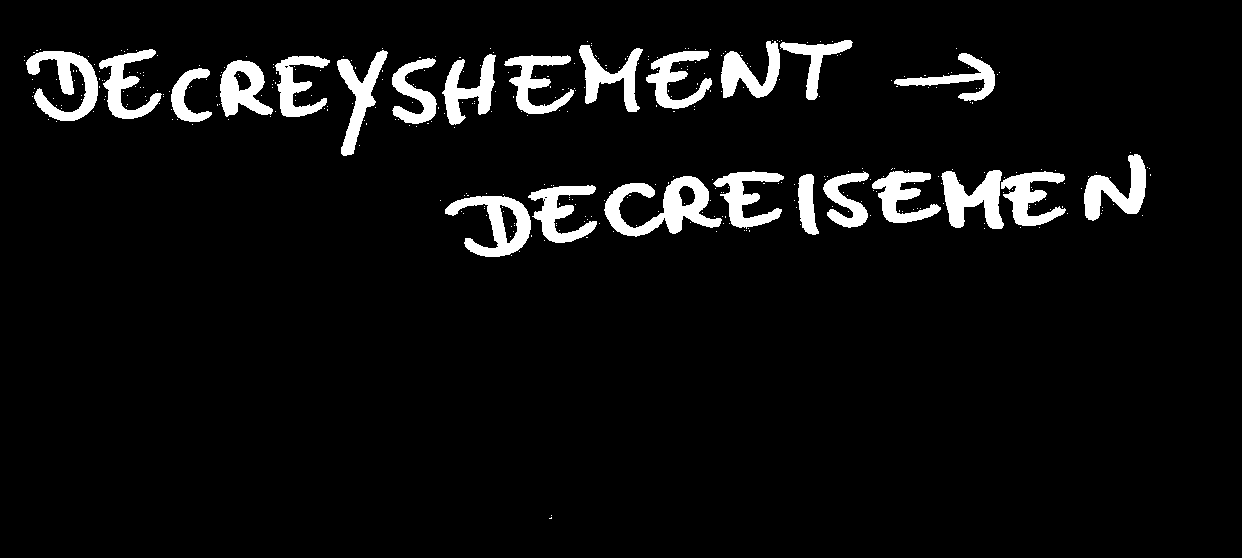 DECREYSHEMENT →
DECREISEMEN